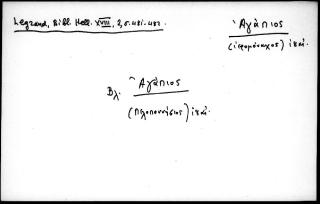 Legrand, Bibl. Hell. XVIII, 2, σ. 481-482.
Ἀγάπιος
(ἱερομόναχος)
Βλ. Ἀγάπιος
(Πελοποννήσιος)